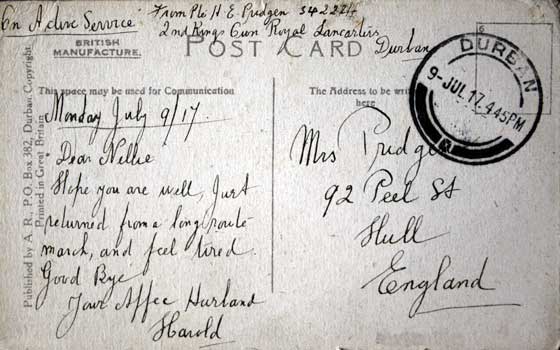 On Active Service
From Pte H. E. Pridgen 34224
2nd Kings Own Royal Lancasters
Durban
BRITISH
MANUFACTURE.
POST CARD
This space may be used for Communication
The Address to be
here
DURBAN
9-JUL 17.4 45PM
Monday July 9/17.
Dear Nellie
Hope you are well, Just
returned from a long route
march, and feel tired.
Good Bye
Your Affec Husband
Harold
Mrs Pridgen
92 Peel St
Hull
England
Published by A. R., P.O. Box 382, Durban. Copyright.
Printed in Great Britain